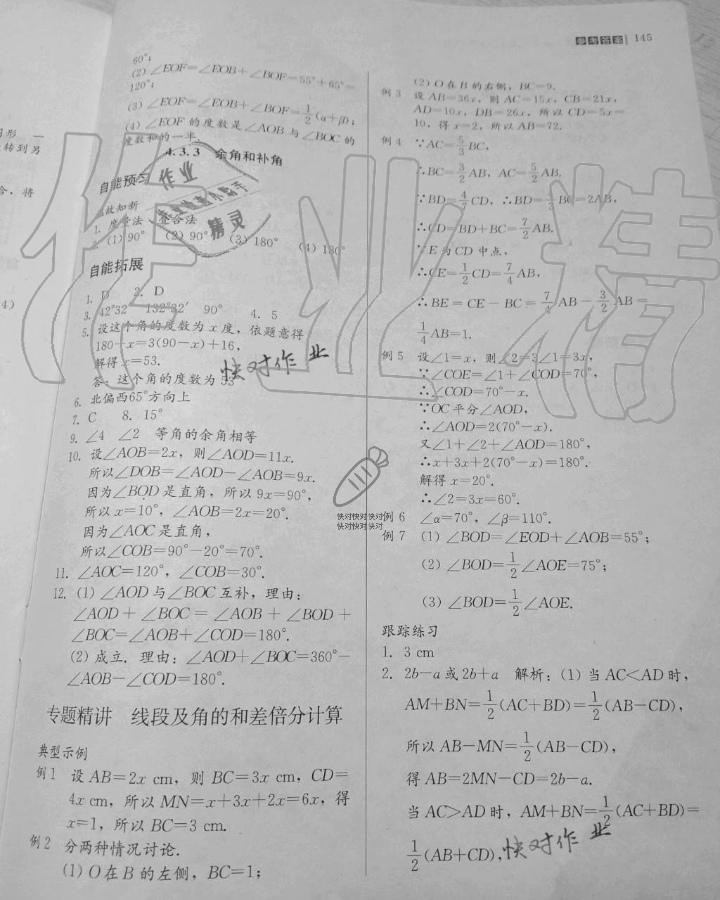 参考答案 145
60°;
(2) ∠EOF=∠EOB+∠BOF=55°+65°=
120°;
(3) ∠EOF=∠EOB+∠BOF=1/2(α+β);
(4) ∠EOF 的度数是∠AOB 与∠BOC 的
度数和的一半.
4.3.3 余角和补角
自能预习
温故知新
1. 度量法 叠合法
(1) 90° (2) 90° (3) 180° (4) 180°
自能拓展
1. D 2. D
3. 42°32′ 132°32′ 90° 4. 5
5. 设这个角的度数为 x 度，依题意得
180-x=3(90-x)+16,
解得 x=53.
答：这个角的度数为 53
6. 北偏西65°方向上
7. C 8. 15°
9. ∠4 ∠2 等角的余角相等
10. 设∠AOB=2x，则∠AOD=11x.
所以∠DOB=∠AOD-∠AOB=9x.
因为∠BOD 是直角，所以 9x=90°,
所以 x=10°，∠AOB=2x=20°.
因为∠AOC 是直角,
所以∠COB=90°-20°=70°.
11. ∠AOC=120°，∠COB=30°.
12. (1) ∠AOD 与∠BOC 互补，理由:
∠AOD+∠BOC=∠AOB+∠BOD+
∠BOC=∠AOB+∠COD=180°.
(2) 成立. 理由：∠AOD+∠BOC=360°-
∠AOB-∠COD=180°.
专题精讲 线段及角的和差倍分计算
典型示例
例1 设 AB=2x cm，则 BC=3x cm，CD=
4x cm，所以 MN=x+3x+2x=6x，得
x=1，所以 BC=3 cm.
例2 分两种情况讨论.
(1) O在B 的左侧，BC=1;
(2) O在B 的右侧，BC=9.
例3 设 AB=36x，则 AC=15x，CB=21x,
AD=10x，DB=26x，所以 CD=5x=
10，得 x=2，所以 AB=72.
例4 ∵AC=5/3BC,
∴BC=3/2AB，AC=5/2AB.
∵BD=4/7CD，∴BD=4/3BC=2AB,
∴CD=BD+BC=7/2AB.
∵E 为 CD 中点,
∴CE=1/2CD=7/4AB,
∴BE=CE-BC=7/4AB-3/2AB=
1/4AB=1.
例5 设∠1=x，则∠2=3∠1=3x,
∵∠COE=∠1+∠COD=70°,
∴∠COD=70°-x.
∵OC 平分∠AOD,
∴∠AOD=2(70°-x).
又∠1+∠2+∠AOD=180°,
∴x+3x+2(70°-x)=180°.
解得 x=20°.
∴∠2=3x=60°.
例6 ∠α=70°，∠β=110°.
例7 (1) ∠BOD=∠EOD+∠AOB=55°;
(2) ∠BOD=1/2∠AOE=75°;
(3) ∠BOD=1/2∠AOE.
跟踪练习
1. 3 cm
2. 2b-a 或 2b+a 解析：(1) 当 AC<AD 时,
AM+BN=1/2(AC+BD)=1/2(AB-CD),
所以 AB-MN=1/2(AB-CD),
得 AB=2MN-CD=2b-a.
当 AC>AD 时，AM+BN=1/2(AC+BD)=
1/2(AB+CD),
快对作业
快对作业
快对快对快对
快对快对快对
作业
精灵
作业精